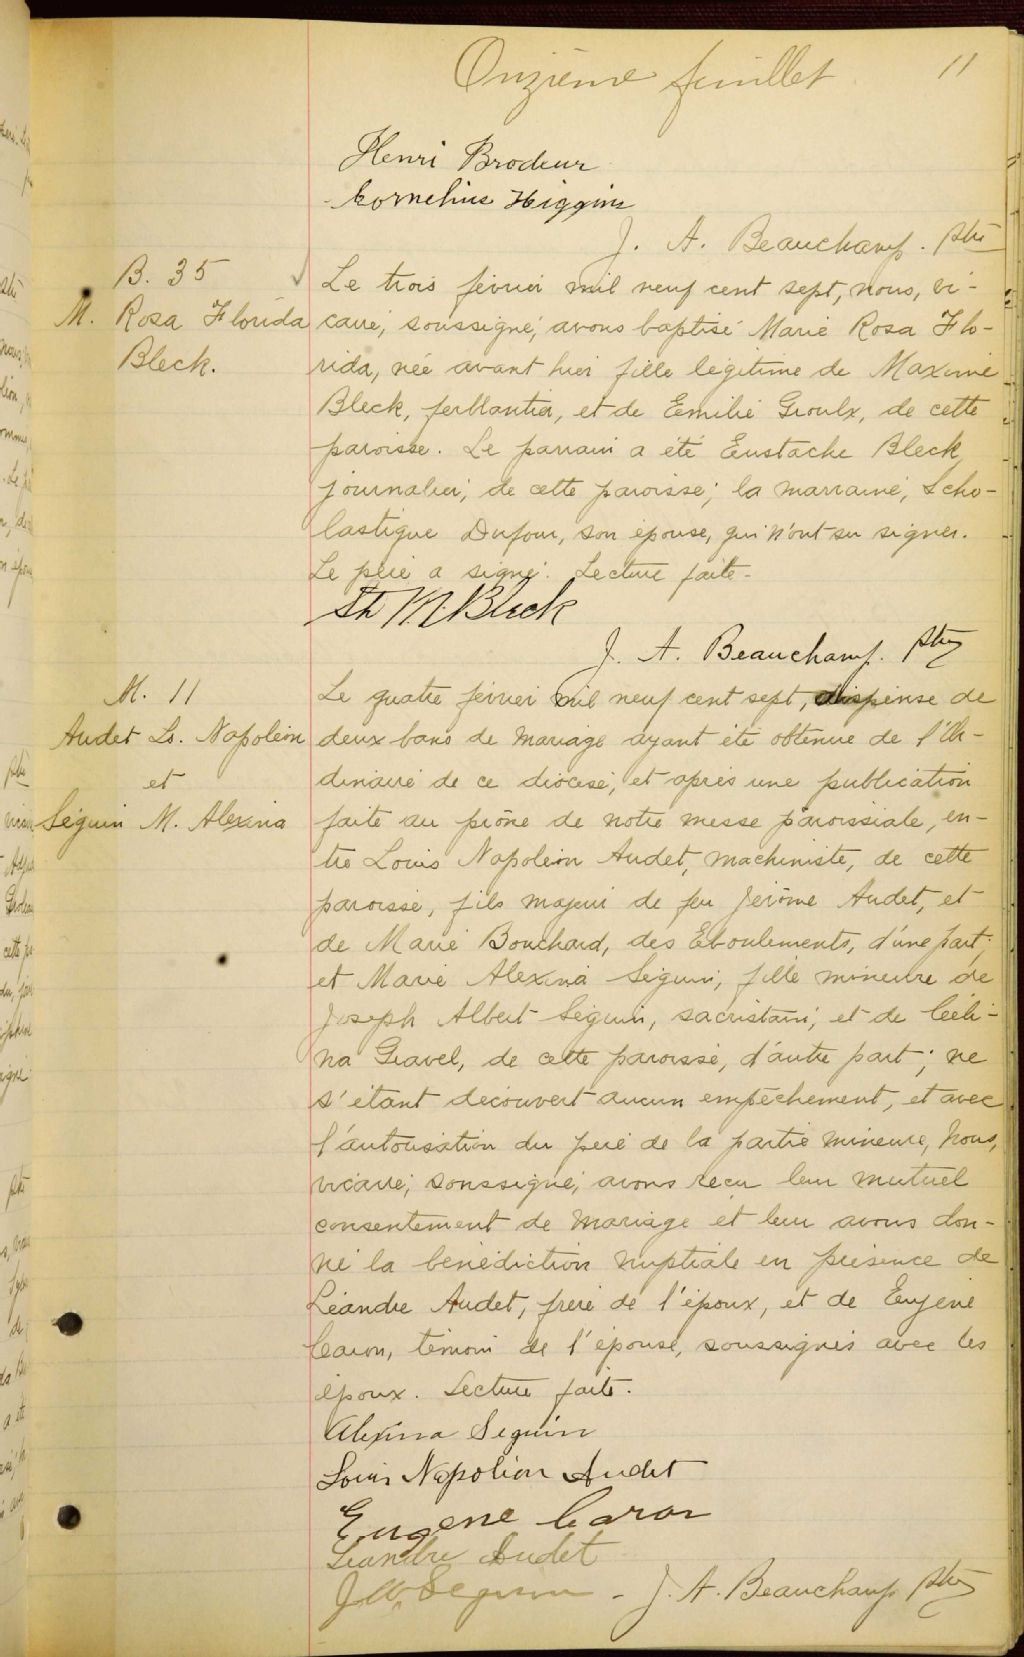 Onzième feuillet 11
Henri Brodeur
Cornelius Higgins
J. A. Beauchamp. ptre
B. 35
M. Rosa Florida
Bleck.
Le trois février mil neuf cent sept, nous, vi-
caire, soussigné, avons baptisé Marie Rosa Flo-
rida, née avant hier fille légitime de Maxime
Bleck, ferblantier, et de Emilie Groulx, de cette
paroisse. Le parrain a été Eustache Bleck,
journalier, de cette paroisse; la marraine, Scho-
lastique Dufour, son épouse, qui n'ont su signer.
Le père a signé. Lecture faite.
M. Bleck
J. A. Beauchamp. ptre
M. 11
Audet Ls. Napoléon
et
Séguin M. Alexina
Le quatre février mil neuf cent sept, dispense de
deux bans de mariage ayant été obtenue de l'Or-
dinaire de ce diocèse, et après une publication
faite au prône de notre messe paroissiale, en-
tre Louis Napoléon Audet, machiniste, de cette
paroisse, fils majeur de feu Jérôme Audet, et
de Marie Bouchard, des Eboulements, d'une part;
et Marie Alexina Séguin, fille mineure de
Joseph Albert Séguin, sacristain, et de Céli-
na Gravel, de cette paroisse, d'autre part; ne
s'étant découvert aucun empêchement, et avec
l'autorisation du père de la partie mineure, Nous,
vicaire, soussigné, avons reçu leur mutuel
consentement de mariage et leur avons don-
né la bénédiction nuptiale en présence de
Léandre Audet, frère de l'époux, et de Eugène
Caron, témoin de l'épouse, soussignés avec les
époux. Lecture faite.
Alexina Seguin
Louis Napoléon Audet
Eugene Caron
Leandre Audet
Seguin - J. A. Beauchamp ptre